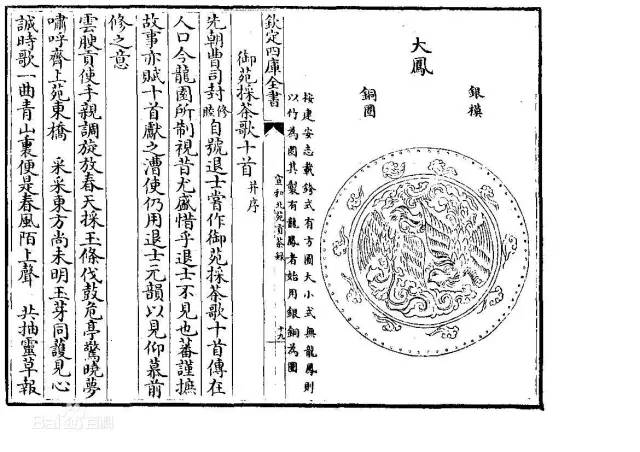 大鳳
銀模
銅圈
按建安志載銙式有方圓大小式無龍鳳則
以竹為圈其製有龍鳳者始用銀銅為圈
欽定四庫全書
宣和北苑貢茶録
十九
御苑採茶歌十首 并序
先朝曹司封修睦自號退士嘗作御苑採茶歌十首傳在
人口今龍園所制視昔尤盛惜乎退士不見也蕃謹撫
故事亦賦十首獻之漕使仍用退士元韻以見仰慕前
修之意
雲腴貢使手親調旋放春天採玉條伐鼓危亭驚曉夢
嘯呼齊上苑東橋 采采東方尚未明玉芽同護見心
誠時歌一曲青山裏便是春風陌上聲 共抽靈草報
Bai百科